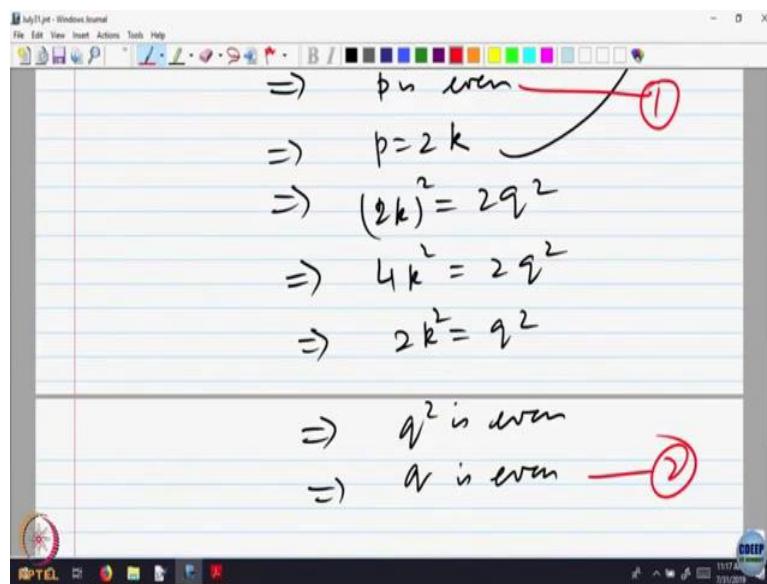 July31.jnt - Windows Journal
File Edit View Insert Actions Tools Help
B I
=> p is even ①
=> p = 2k
=> (2k)² = 2q²
=> 4k² = 2q²
=> 2k² = q²
=> q² is even
=> q is even ②
NPTEL
CDEEP
11:17 AM
7/31/2019